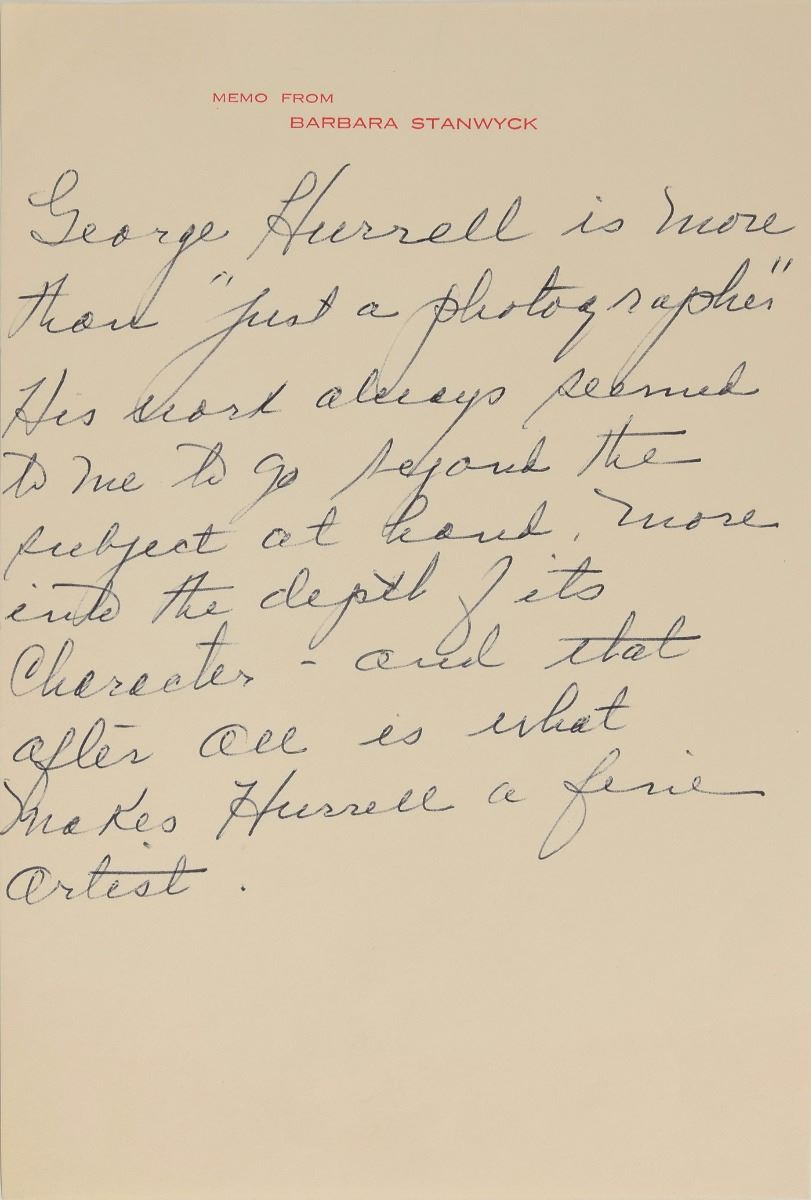 MEMO FROM
BARBARA STANWYCK
George Hurrell is more
than "just a photographer"
His work always seemed
to me to go beyond the
subject at hand, more
into the depth of its
Character - and that
after all is what
makes Hurrell a fine
artist.